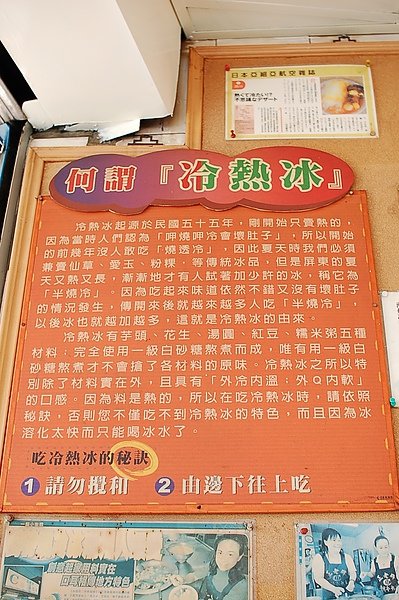 日本亞細亞航空雜誌
熱くて冷たい!?
不思議なデザート
何謂『冷熱冰』
冷熱冰起源於民國五十五年，剛開始只賣熱的，
因為當時人們認為「呷燒呷冷會壞肚子」，所以開始
的前幾年沒人敢吃「燒透冷」，因此夏天時我們必須
兼賣仙草、愛玉、粉粿，等傳統冰品，但是屏東的夏
天又熱又長，漸漸地才有人試著加少許的冰，稱它為
「半燒冷」。因為吃起來味道依然不錯又沒有壞肚子
的情況發生，傳開來後就越來越多人吃「半燒冷」，
以後冰也就越加越多，這就是冷熱冰的由來。
冷熱冰有芋頭、花生、湯圓、紅豆、糯米粥五種
材料；完全使用一級白砂糖熬煮而成，唯有用一級白
砂糖熬煮才不會搶了各材料的原味。冷熱冰之所以特
別除了材料實在外，且具有「外冷內溫；外Q內軟」
的口感。因為料是熱的，所以在吃冷熱冰時，請依照
秘訣，否則您不僅吃不到冷熱冰的特色，而且因為冰
溶化太快而只能喝冰水了。
吃冷熱冰的秘訣
1 請勿攪和 2 由邊下往上吃